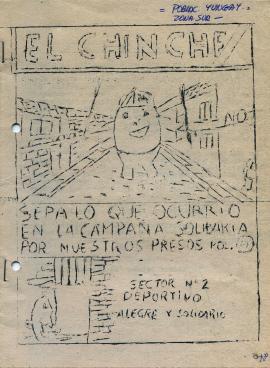 = POBLAC. YUNGAY =
ZONA SUR —
EL CHINCHE
NO.
SEPA LO QUE OCURRIO
EN LA CAMPAÑA SOLIDARIA
POR NUESTROS PRESOS POL.
SECTOR Nº2
DEPORTIVO
ALEGRE Y SOLIDARIO